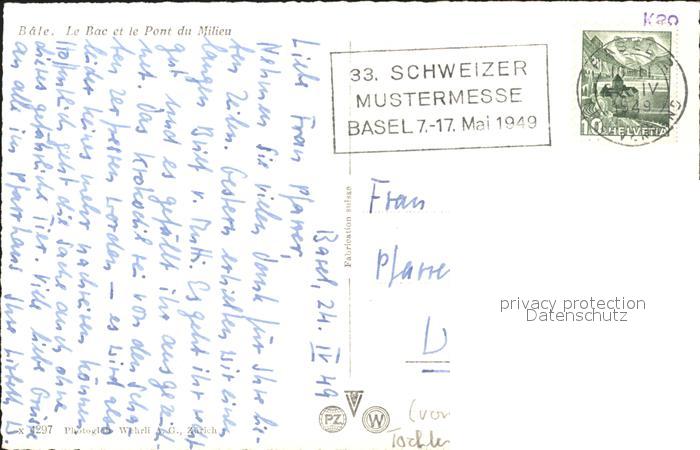 Bâle. Le Bac et le Pont du Milieu
33. SCHWEIZER
MUSTERMESSE
BASEL 7.-17. Mai 1949
10 HELVETIA
Basel, 24. IV 49
Liebe Frau Pfarrer,
Nehmen Sie vielen Dank für Ihre lie-
ben Zeilen. Gestern erhielten wir einen
langen Brief v. Mutti. Es geht ihr recht
gut und es gefällt ihr ausgezeich-
net. Das Krokodil sei von den Scha
ten zerfressen worden — es wird also
leider keines mehr nachreisen können.
Hoffentlich geht die Sache auch ohne
dieses gefährliche Tier. Viele liebe Grüsse
an alle im Pfarrhaus Ihre
Fabrication suisse
Frau
Pfarre
(von
Tochter
privacy protection
Datenschutz
PZ.
W
x 4297 Photoglob-Wehrli A.G., Zürich